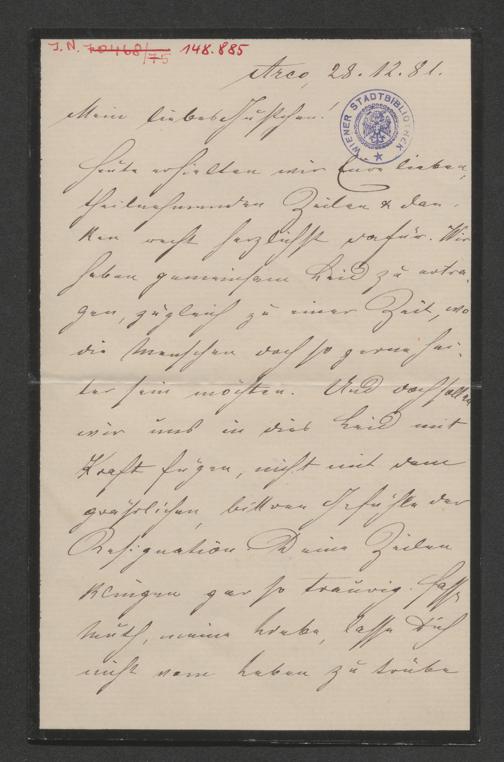 J. N. 70468/75 148.885
Arco, 28.12.81.
WIENER STADTBIBLIOTHEK
Mein liebes !
Heute erhielten wir Eure lieben,
theilnehmenden Zeilen & dan-
ken recht herzlichst dafür. Wir
haben gemeinsam Leid zu ertra-
gen, zugleich zu einer Zeit, wo
die Menschen doch so gerne hei-
ter sein möchten. Und doch sollen
wir uns in dies Leid mit
Kraft fügen, nicht mit dem
grässlichen, bittren Gefühle der
Resignation. Deine Zeilen
klingen gar so traurig. Fasse
Muth, meine Liebe, lasse Dich
nicht vom Leben zu trübe